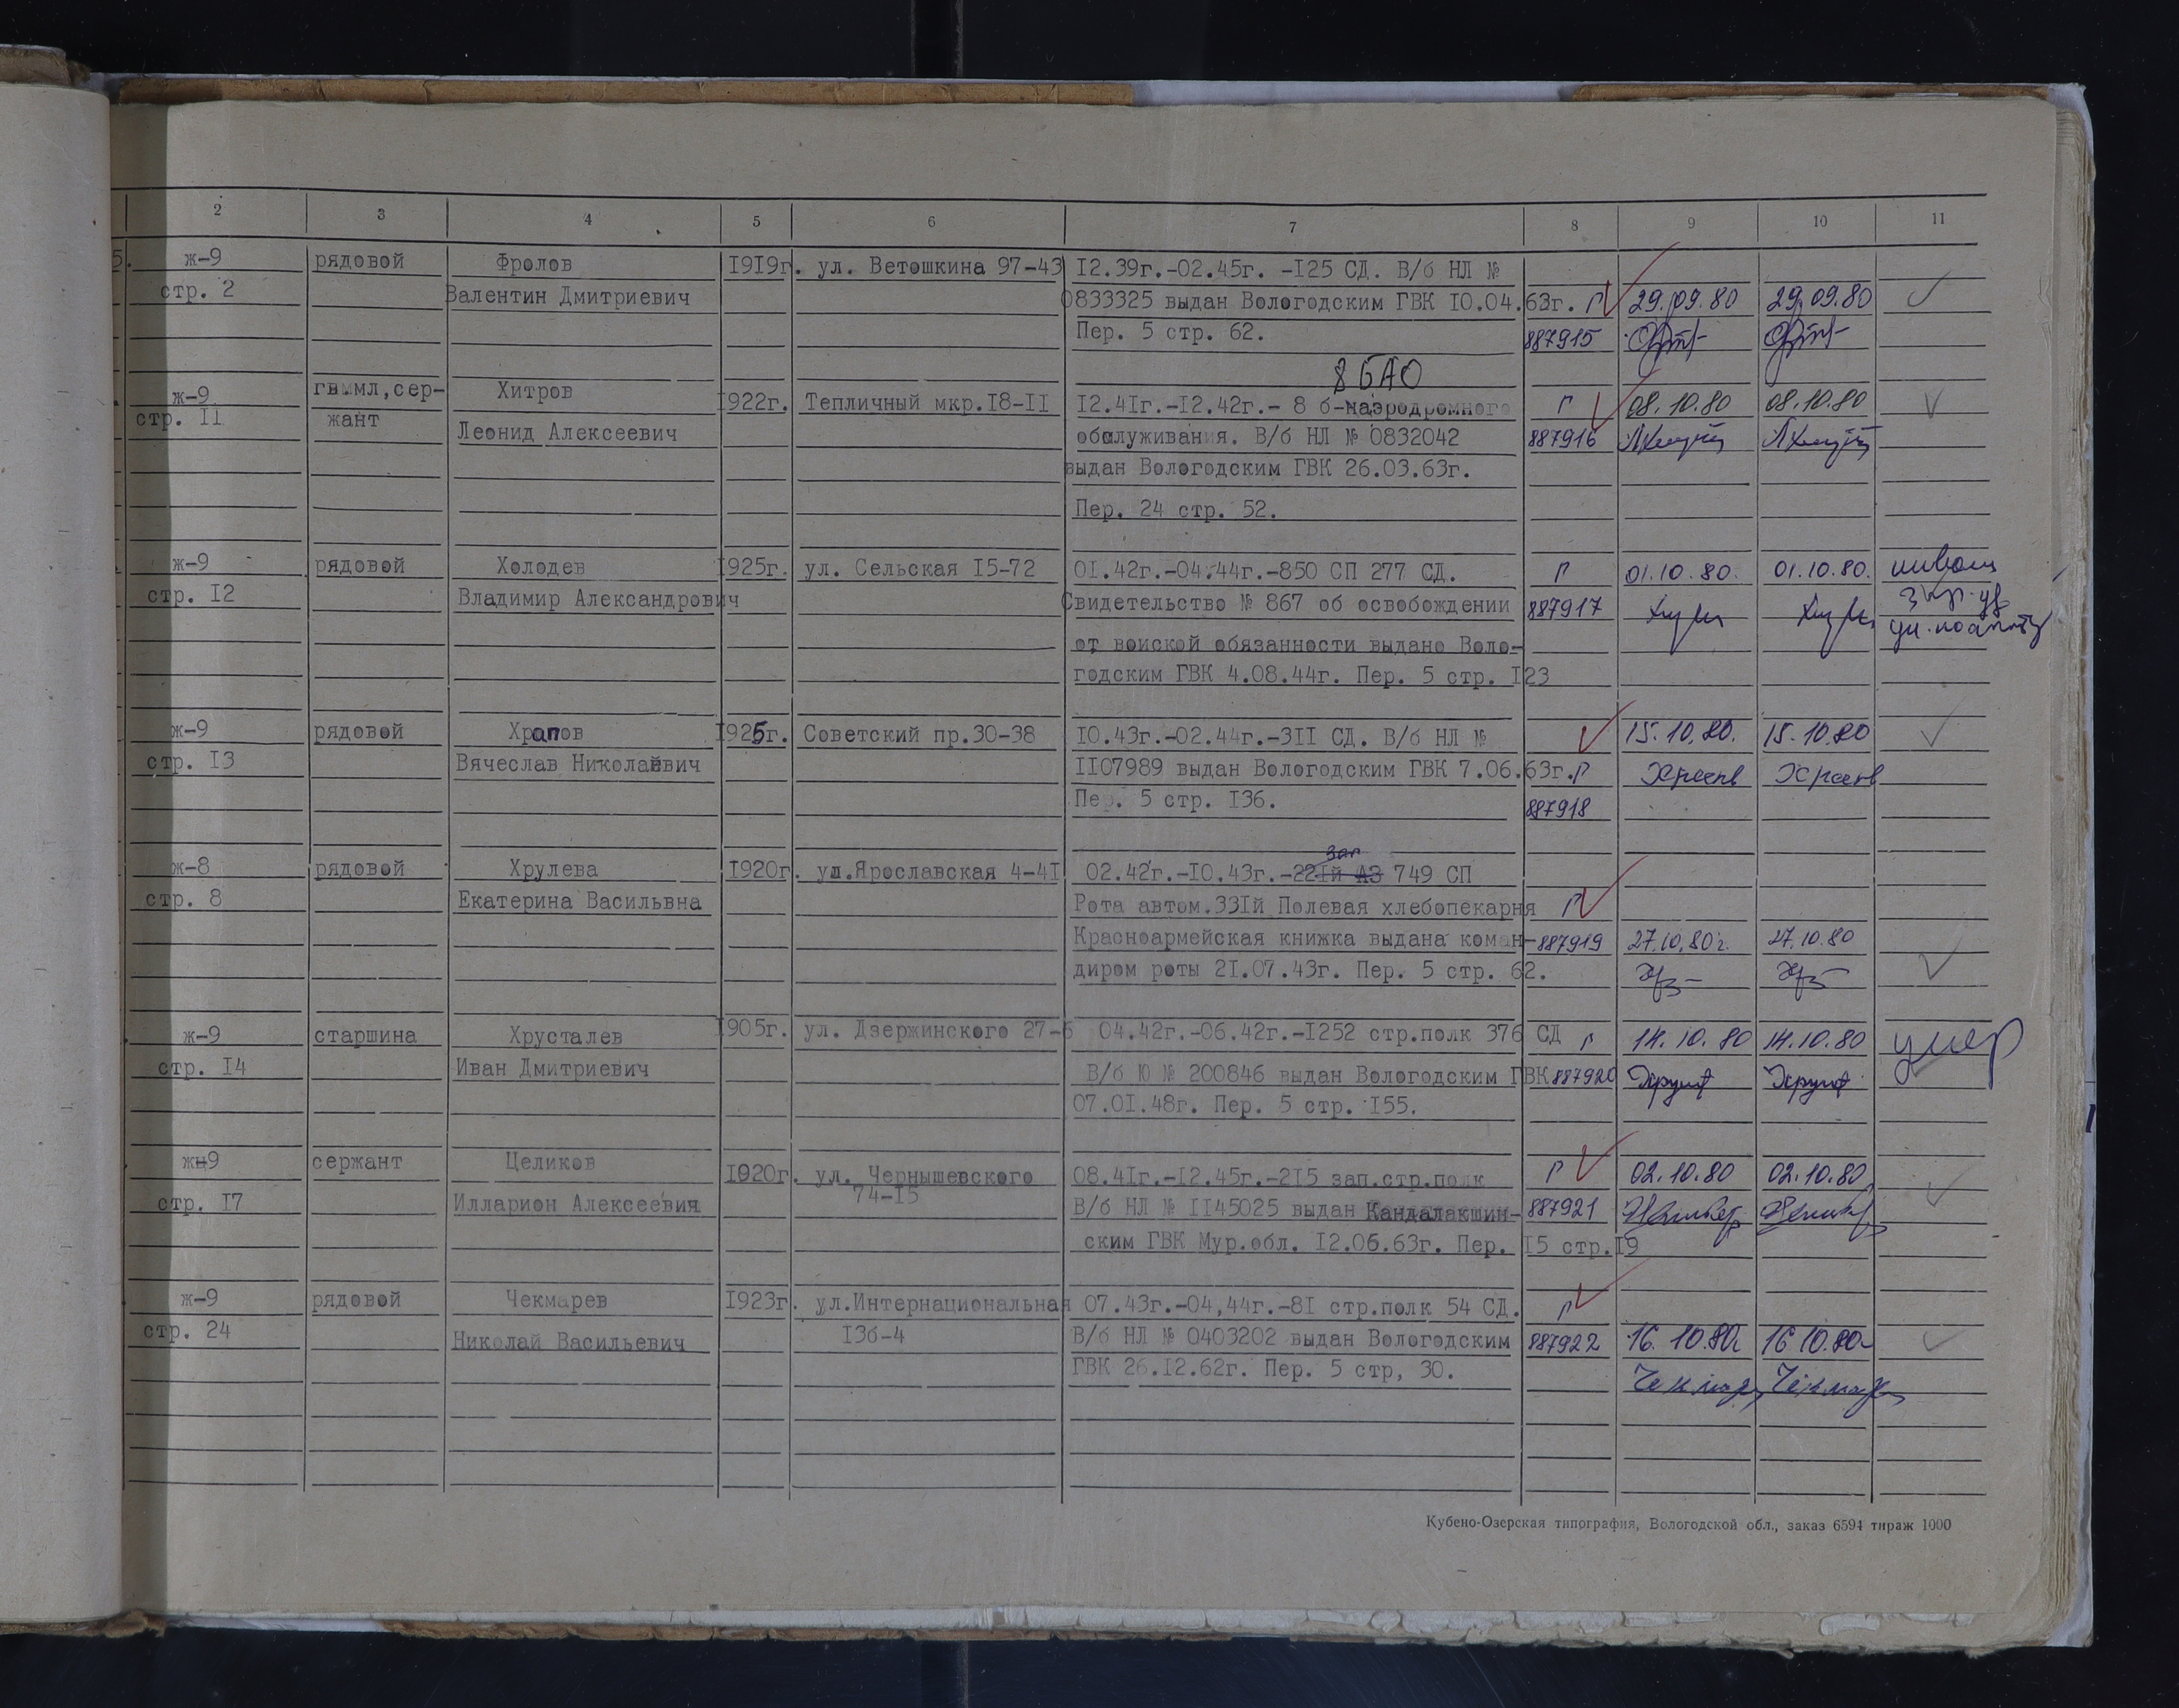 2 3 4 5 6 7 8 9 10 11
5. ж-9 рядовой Фролов 1919г. ул. Ветошкина 97-43 12.39г.-02.45г. -125 СД. В/б НЛ №
стр. 2 Валентин Дмитриевич 0833325 выдан Вологодским ГВК 10.04.63г. Г 29.09.80 29.09.80
Пер. 5 стр. 62. 887915
8 БАО
ж-9 сер- Хитров
стр. 11 жант 1922г. Тепличный мкр.18-11 12.41г.-12.42г.- 8 б-наэродромного Г 08.10.80 08.10.80
Леонид Алексеевич обслуживания. В/б НЛ № 0832042 887916
выдан Вологодским ГВК 26.03.63г.
Пер. 24 стр. 52.
ж-9 рядовой Холодев 1925г. ул. Сельская 15-72 01.42г.-04.44г.-850 СП 277 СД. Г 01.10.80. 01.10.80.
стр. 12 Владимир Александрович Свидетельство № 867 об освобождении 887917
от воиской обязанности выдано Воло-
годским ГВК 4.08.44г. Пер. 5 стр. 123
ж-9 рядовой Храпов 1925г. Советский пр.30-38 10.43г.-02.44г.-311 СД. В/б НЛ № 15.10.80. 15.10.80
стр. 13 Вячеслав Николаевич 1107989 выдан Вологодским ГВК 7.06.63г. Г
Пер. 5 стр. 136. 887918
зап
ж-8 рядовой Хрулева 1920г. ул.Ярославская 4-41 02.42г.-10.43г.-221й АЗ 749 СП
стр. 8 Екатерина Васильвна Рота автом.331й Полевая хлебопекарня Г
Красноармейская книжка выдана коман- 887919 27.10.80г. 27.10.80
диром роты 21.07.43г. Пер. 5 стр. 62.
ж-9 старшина Хрусталев 1905г. ул. Дзержинского 27-6 04.42г.-06.42г.-1252 стр.полк 376 СД Г 14.10.80 14.10.80 умер
стр. 14 Иван Дмитриевич В/б Ю № 200846 выдан Вологодским ГВК 887920 Хруст Хруст
07.01.48г. Пер. 5 стр. 155.
ж-9 сержант Целиков 1920г. ул. Чернышевского 08.41г.-12.45г.-215 зап.стр.полк Г 02.10.80 02.10.80
74-15
стр. 17 Илларион Алексеевич В/б НЛ № 1145025 выдан Кандалакшин- 887921
ским ГВК Мур.обл. 12.06.63г. Пер. 15 стр.19
ж-9 рядовой Чекмарев 1923г. ул.Интернациональная 07.43г.-04,44г.-81 стр.полк 54 СД. Г
стр. 24 Николай Васильевич 136-4 В/б НЛ № 0403202 выдан Вологодским 887922 16.10.80г 16 10.80г
ГВК 26.12.62г. Пер. 5 стр, 30.
Чекмар Чекмар
Кубено-Озерская типография, Вологодской обл., заказ 6594 тираж 1000